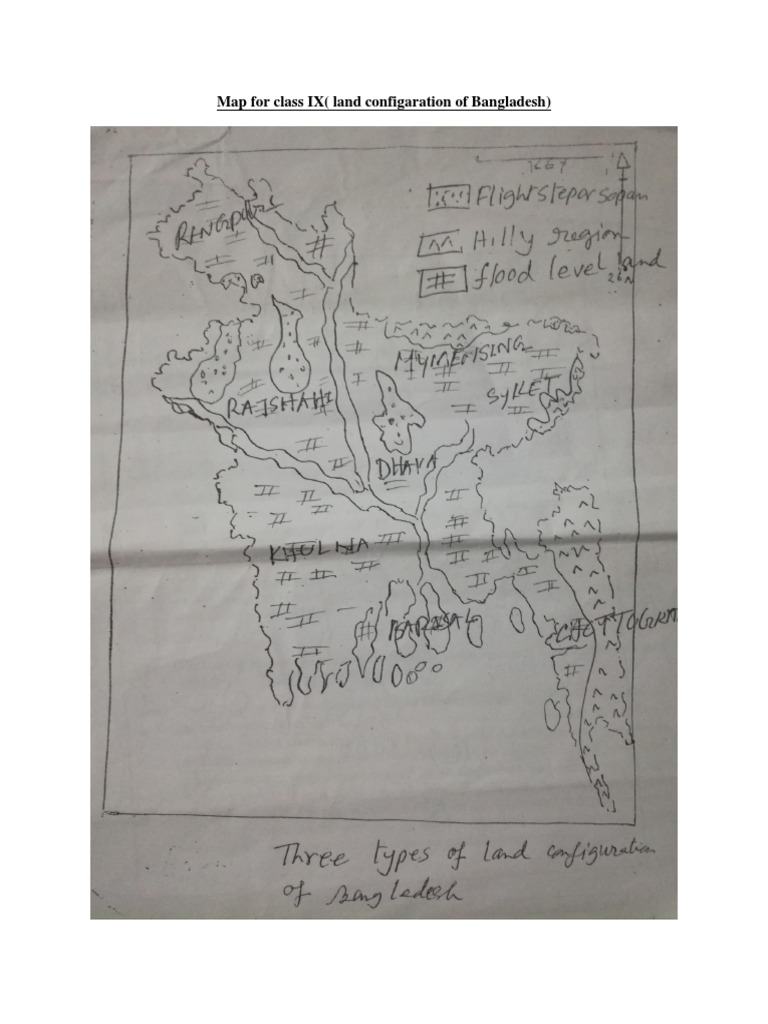 Map for class IX( land configaration of Bangladesh)
Hilly region
flood level land
RANGPUR
MYMENSING
SYLKET
RAJSHAHI
DHAKA
KHULNA
BARISAL
CHOTTOGRAM
Three types of land configuration
of Bangladesh